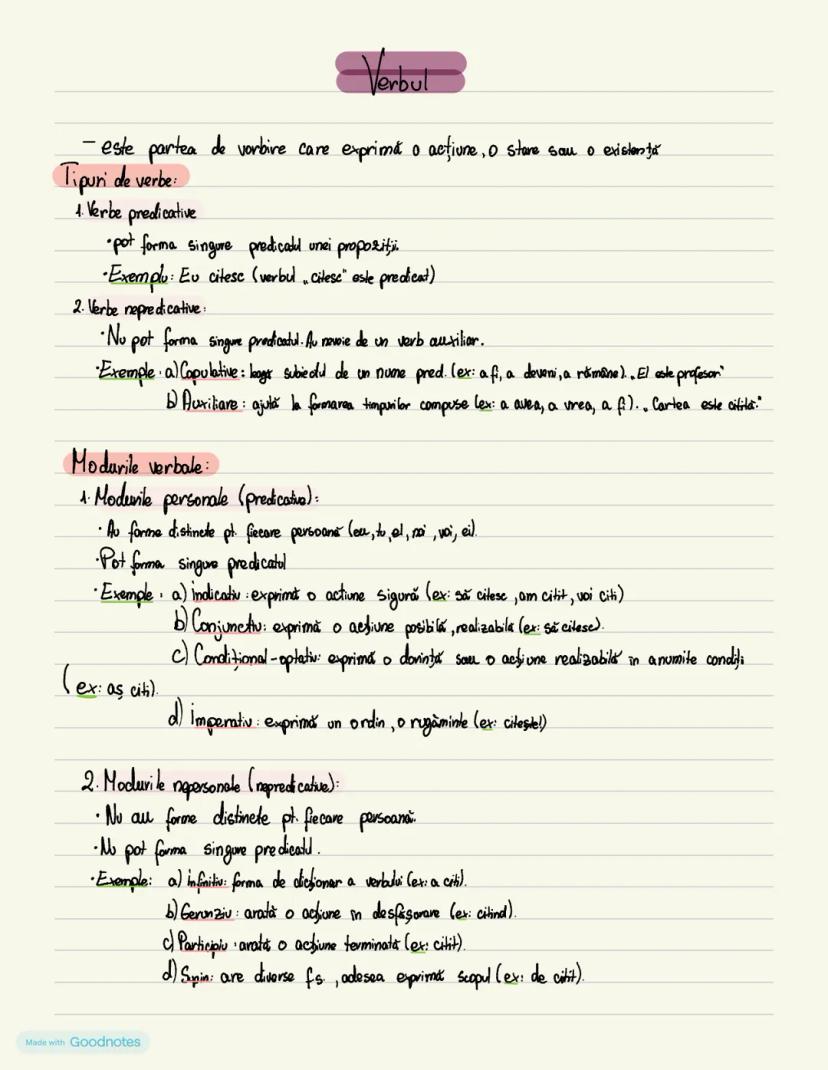 Verbul
- este partea de vorbire care exprimă o acțiune, o stare sau o existență
Tipuri de verbe:
1. Verbe predicative
• pot forma singure predicatul unei propoziții.
• Exemplu: Eu citesc (verbul „citesc" este predicat)
2. Verbe nepredicative:
• Nu pot forma singure predicatul. Au nevoie de un verb auxiliar.
• Exemple: a) Copulative: leagă subiectul de un nume pred. (ex: a fi, a deveni, a rămâne). „El este profesor"
b) Auxiliare: ajută la formarea timpurilor compuse (ex: a avea, a vrea, a fi). „Cartea este citită."
Modurile verbale:
1. Modurile personale (predicative):
• Au forme distincte pt. fiecare persoană (eu, tu, el, noi, voi, ei).
• Pot forma singure predicatul
• Exemple: a) indicativ: exprimă o actiune sigură (ex: să citesc, am citit, voi citi)
b) Conjunctiv: exprimă o acțiune posibilă, realizabilă (ex: să citesc).
c) Condițional-optativ: exprimă o dorință sau o acțiune realizabilă în anumite condiții
(ex: aș citi).
d) imperativ: exprimă un ordin, o rugăminte (ex: citește!)
2. Modurile nepersonale (nepredicative):
• Nu au forme distincte pt. fiecare persoană.
• Nu pot forma singure predicatul.
• Exemple: a) infinitiv: forma de dicționar a verbului (ex: a citi).
b) Gerunziu: arată o acțiune în desfășurare (ex: citind).
c) Participiu: arată o acțiune terminată (ex: citit).
d) Supin: are diverse fs., adesea exprimă scopul (ex: de citit).
Made with Goodnotes